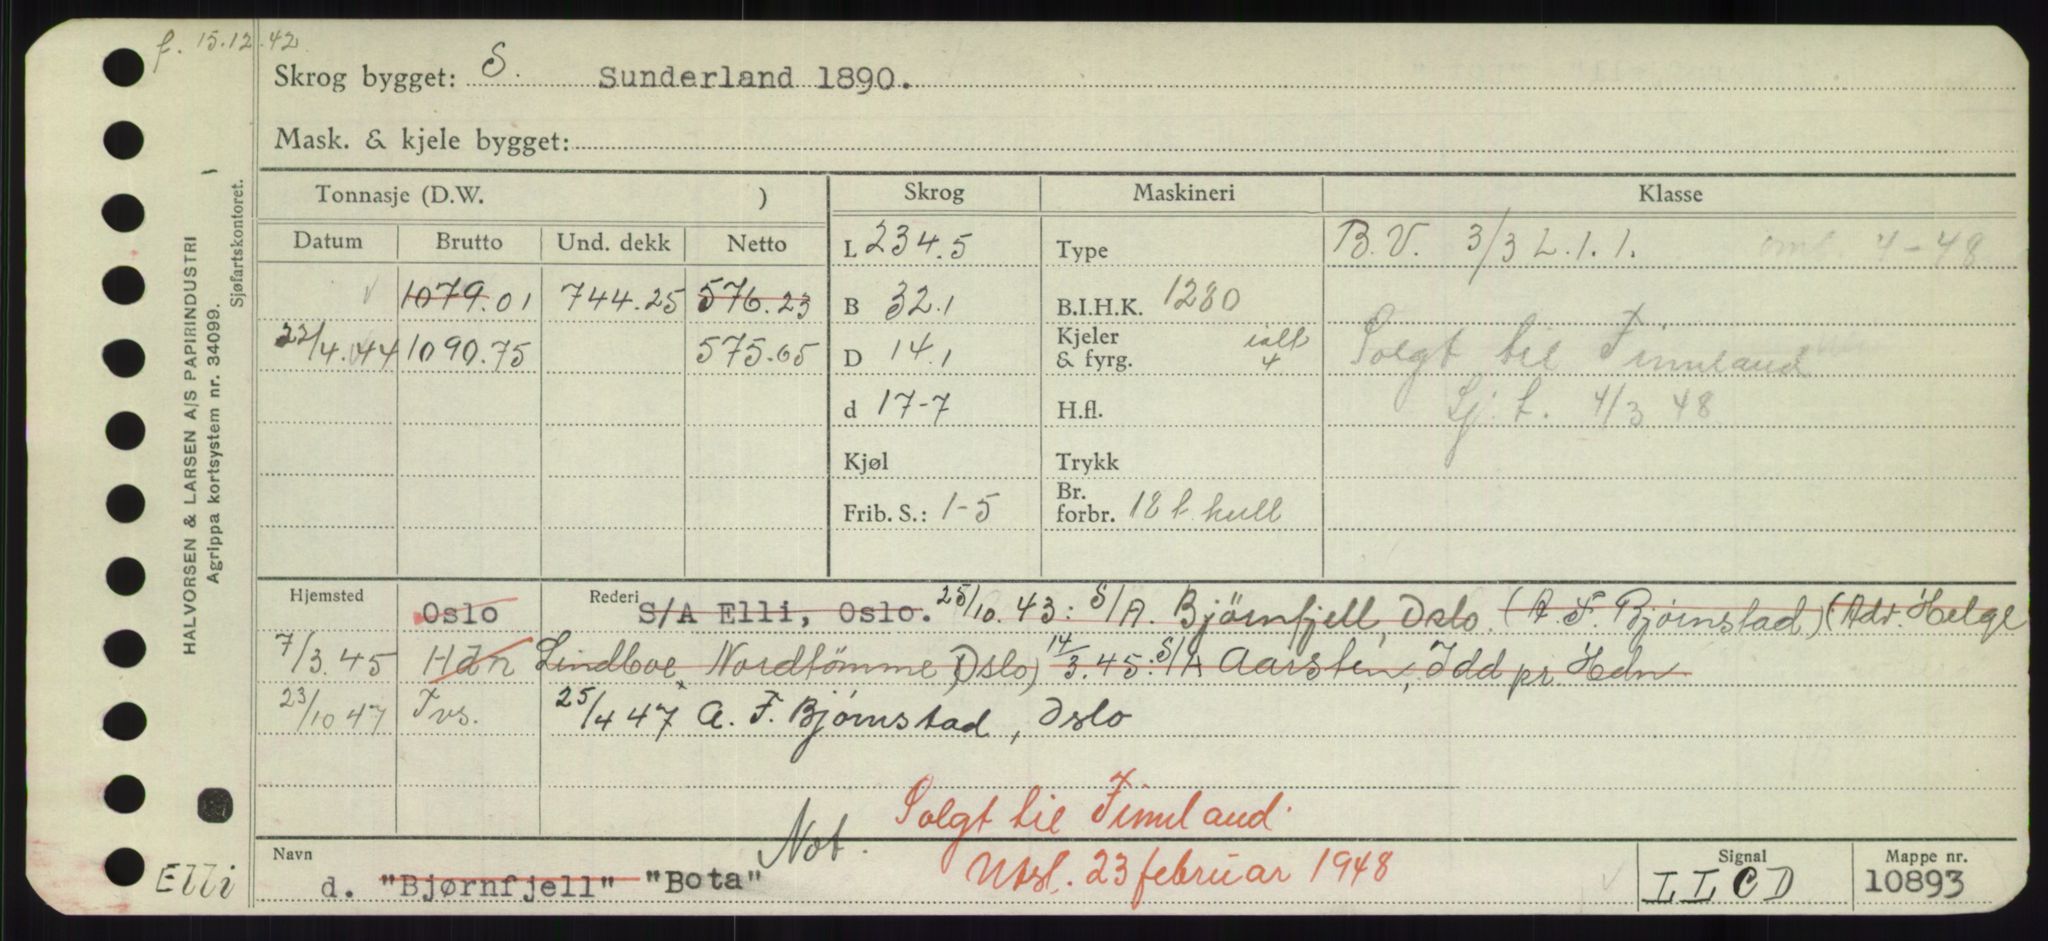 f. 15.12.42
Skrog bygget: S. Sunderland 1890.
Mask. & kjele bygget:
HALVORSEN & LARSEN A/S PAPIRINDUSTRI
Agrippa kortsystem nr. 34099.
Sjøfartskontoret.
Tonnasje (D.W. ) Skrog Maskineri Klasse
Datum Brutto Und. dekk Netto L 234.5 Type B.V. 3/3 L.1.1. omb. 4-48
1079.01 744.25 576.23 B 32.1 B.I.H.K. 1280
22/4.44 1090.75 575.65 D 14.1 Kjeler & fyrg. ialt 4 Solgt til Finnland
d 17-7 H.fl. Sj. t. 4/3 48
Kjøl Trykk
Frib. S.: 1-5 Br. forbr. 18 t. kull
Hjemsted Oslo Rederi S/A Elli, Oslo. 25/10.43: S/A. Bjørnfjell, Oslo. (A. F. Bjørnstad) (Adr. Helge
7/3.45 Hdn Lindboe, Nordtømme, Oslo) 14/3.45: S/A Aarsten, Idd pr. Hdn
23/10 47 Tvs. 25/4 47 A. F. Bjørnstad, Oslo
Solgt til Finnland.
Not.
Navn d. "Bjørnfjell" "Bota" Utsl. 23 februar 1948 Signal LLCD Mappe nr. 10893
Elli